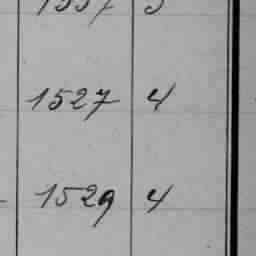 1527 4
1529 4